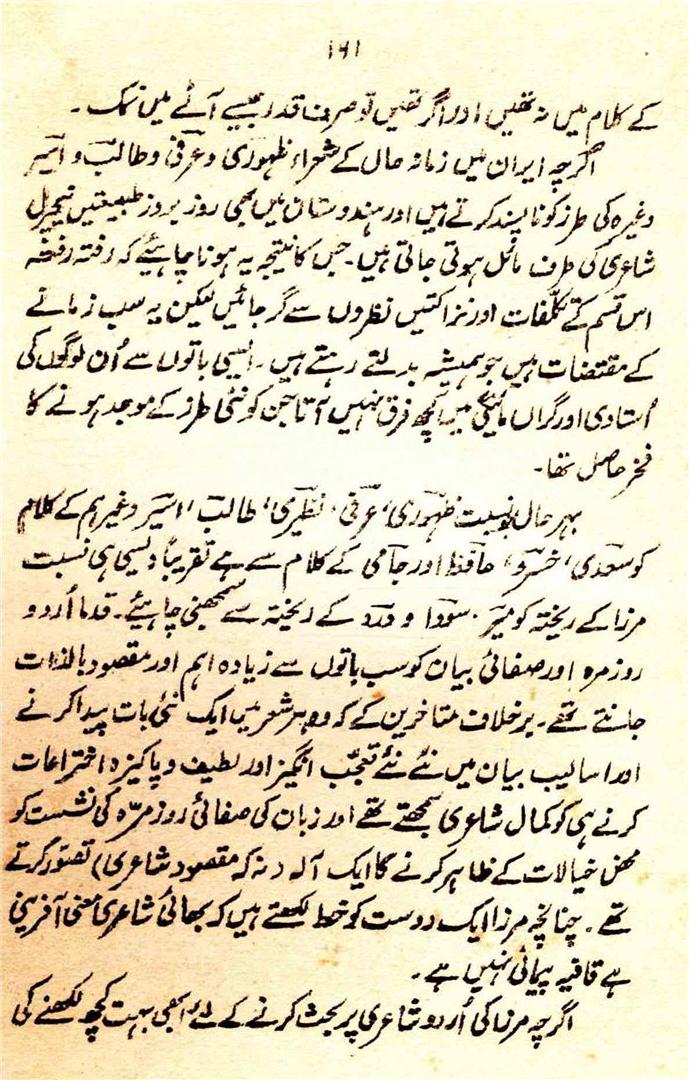 ۱۶۱
کے کلام میں نہ تھیں اور اگر تھیں تو صرف قدر جیسے آٹے میں نمک ۔
اگرچہ ایران میں زمانہ حال کے شعراء ظہوری و عرفی و طالب و اسیر
وغیرہ کی طرز کو ناپسند کرتے ہیں اور ہندوستان میں بھی روز بروز طبیعتیں نیچرل
شاعری کی طرف مائل ہوتی جاتی ہیں ۔ جس کا نتیجہ یہ ہونا چاہئے کہ رفتہ رفتہ
اس قسم کے تکلّفات اور نزاکتیں نظروں سے گر جائیں لیکن یہ سب زمانے
کے مقتضات ہیں جو ہمیشہ بدلتے رہتے ہیں ۔ ایسی باتوں سے اُن لوگوں کی
اُستادی اور گراں مائیگی میں کچھ فرق نہیں آتا جن کو نئی طرز کے موجد ہونے کا
فخر حاصل تھا ۔
بہر حال جو نسبت ظہوری ، عرفی ، نظیری ، طالب ، اسیر وغیرہم کے کلام
کو سعدی ، خسرو ، حافظ اور جامی کے کلام سے ہے تقریباً ویسی ہی نسبت
مرزا کے ریختہ کو میر ، سودا و درد کے ریختہ سے سمجھنی چاہیئے ۔ قدما اُردو
روزمرہ اور صفائی بیان کو سب باتوں سے زیادہ اہم اور مقصود بالذات
جانتے تھے ۔ برخلاف متاخرین کے کہ وہ ہر شعر میں ایک نئی بات پیدا کرنے
اور اسالیب بیان میں نئے نئے تعجّب انگیز اور لطیف و پاکیزہ اختراعات
کرنے ہی کو کمال شاعری سمجھتے تھے اور زبان کی صفائی روزمرّہ کی نشست کو
محض خیالات کے ظاہر کرنے کا ایک آلہ (نہ کہ مقصود شاعری) تصوّر کرتے
تھے ۔ چنانچہ مرزا ایک دوست کو خط لکھتے ہیں کہ بھائی شاعری معنی آفرینی
ہے قافیہ پیمائی نہیں ہے ۔
اگرچہ مرزا کی اُردو شاعری پر بحث کرنے کے لئے ابھی بہت کچھ لکھنے کی